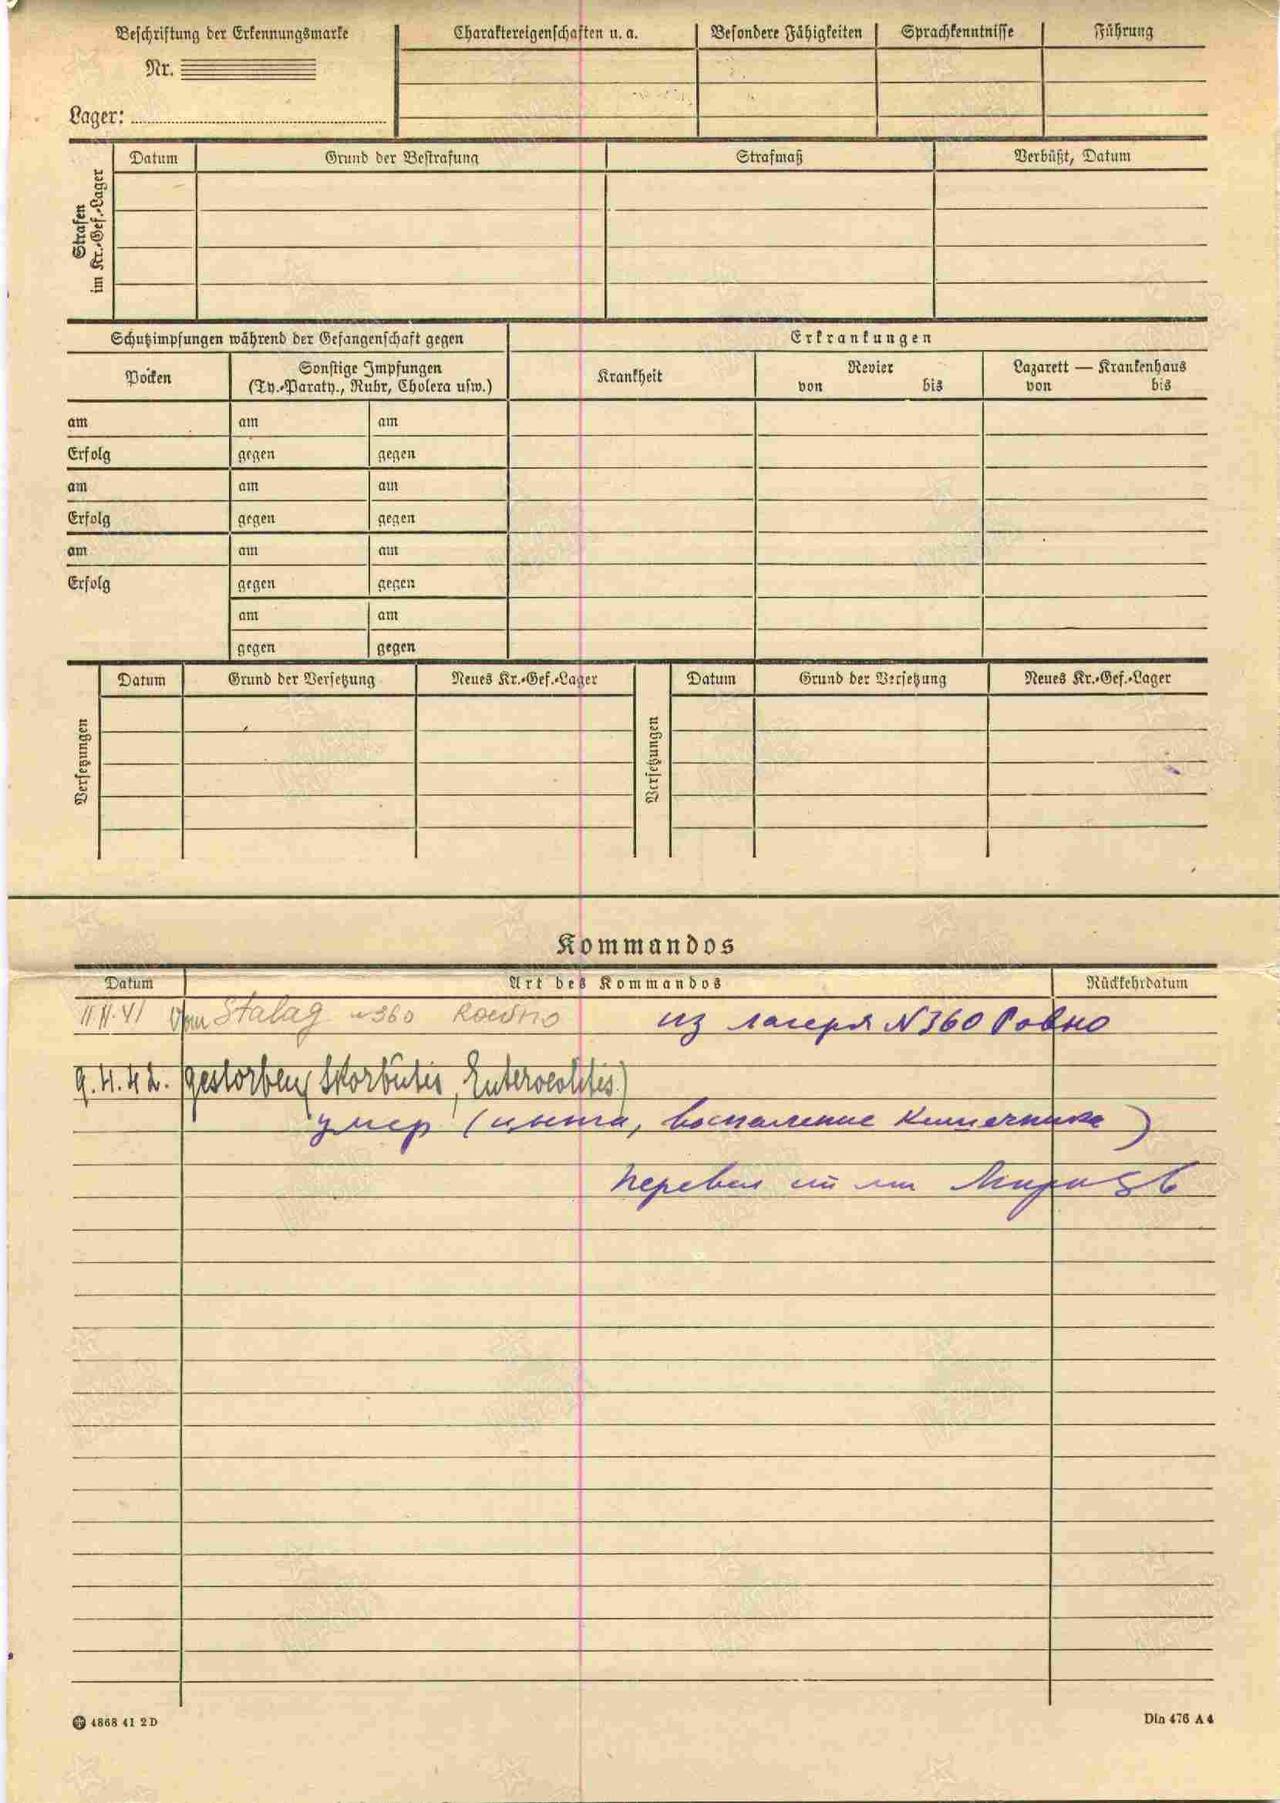 Beschriftung der Erkennungsmarke
Nr.
Lager:
Charaktereigenschaften u. a.
Besondere Fähigkeiten
Sprachkenntnisse
Führung
Strafen im Kr.-Gef.-Lager
Datum
Grund der Bestrafung
Strafmaß
Verbüßt, Datum
Schutzimpfungen während der Gefangenschaft gegen
Erkrankungen
Pocken
Sonstige Impfungen
(Ty.-Paraty., Ruhr, Cholera usw.)
Krankheit
Revier
von bis
Lazarett — Krankenhaus
von bis
am am am
Erfolg gegen gegen
am am am
Erfolg gegen gegen
am am am
Erfolg gegen gegen
am am
gegen gegen
Versetzungen
Datum
Grund der Versetzung
Neues Kr.-Gef.-Lager
Versetzungen
Datum
Grund der Versetzung
Neues Kr.-Gef.-Lager
Kommandos
Datum
Art des Kommandos
Rückkehrdatum
vom Stalag 360 Rowno из лагеря N 360 Ровно
9.4.42. gestorben (Skorbutis, Enterocolitis)
умер (цинга, воспаление кишечника)
Перевел
4868 41 2 D
Din 476 A 4